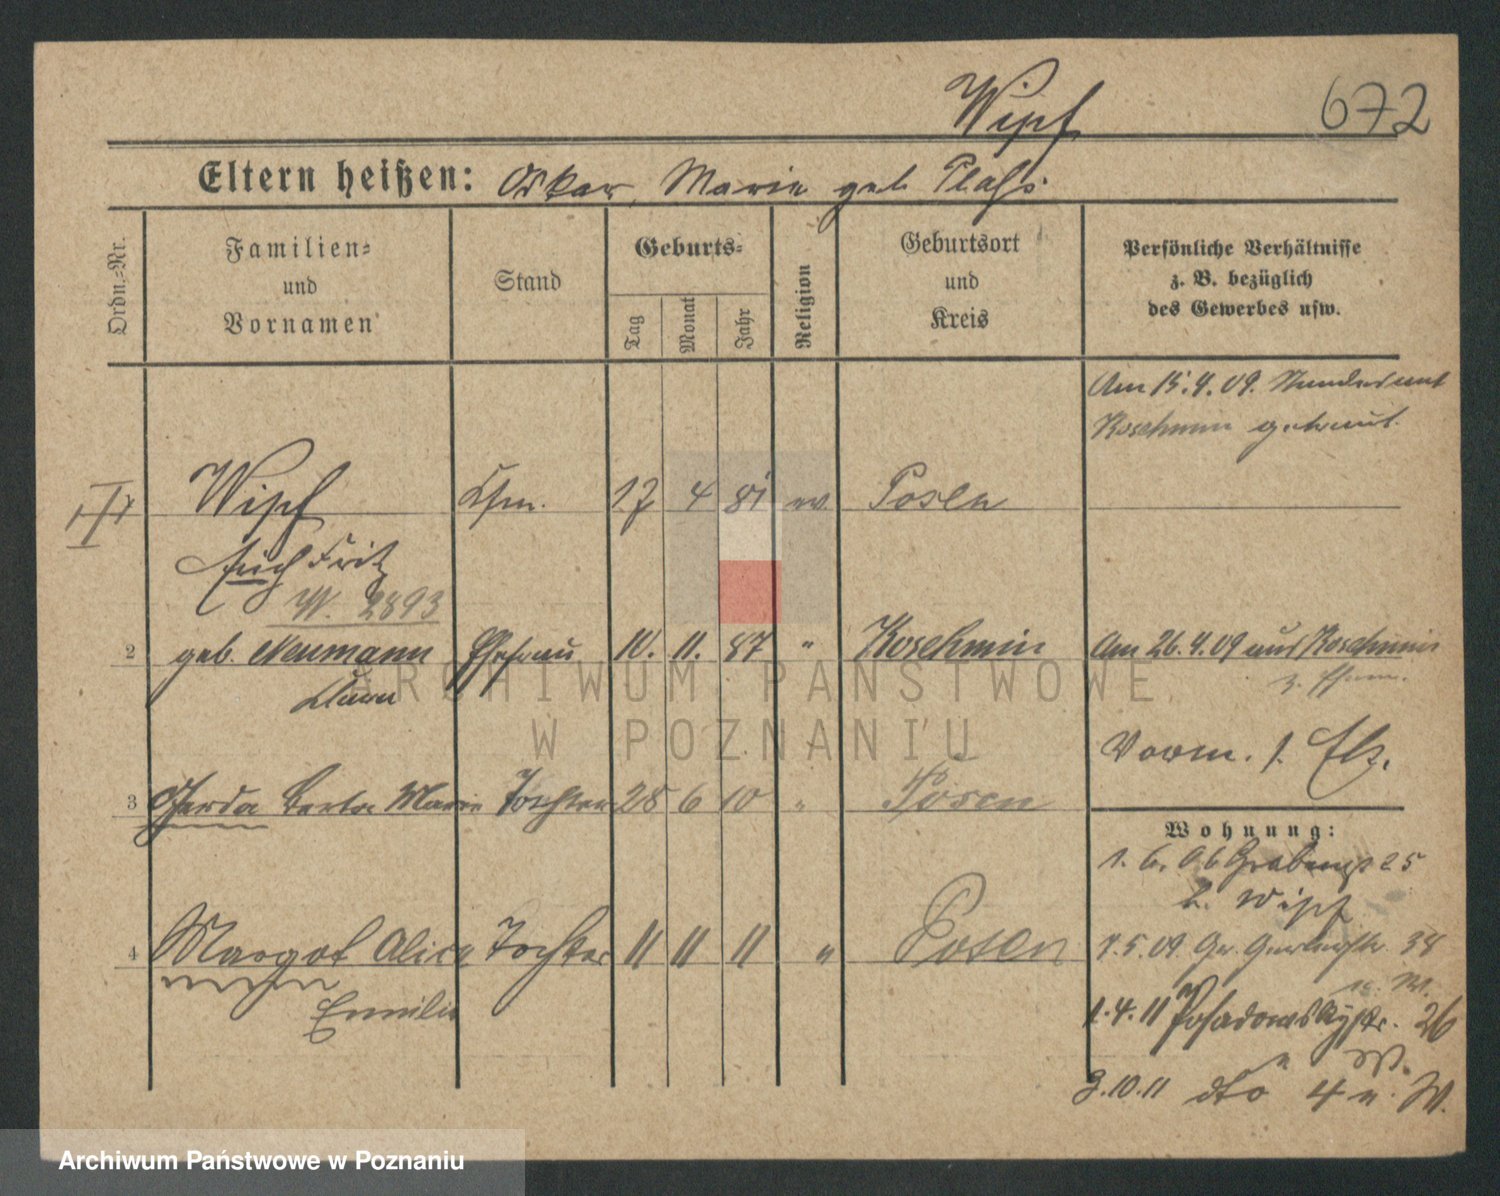 Wipf 672
Eltern heißen: Oskar, Marie geb. Plahs
Ordn.-Nr.
Familien-
und
Vornamen
Stand
Geburts-
Tag
Monat
Jahr
Religion
Geburtsort
und
Kreis
Persönliche Verhältnisse
z. B. bezüglich
des Gewerbes usw.
Am 15.4.09. Standesamt
Koschmin getraut.
Wipf Kfm. 17 4 81 ev. Posen
Erich Fritz
W. 2893
2 geb. Neumann Ehefrau 10. 11. 87 " Koschmin Am 26.4.09 aus Koschmin
z. Ehem.
Clara
Vorm. s. Elz.
3 Gerda Berta Marie Tochter 28 6 10 " Posen
Wohnung:
1. 6. 06 25
b. Wipf
4 Margot Alice Tochter 11 11 11 " Posen
Emilie
1.5.09. Gr. 38
1.4.11 Posadowskystr. 26
b. W.
3.10.11 dto 4 n. W.
ARCHIWUM PAŃSTWOWE
W POZNANIU
Archiwum Państwowe w Poznaniu